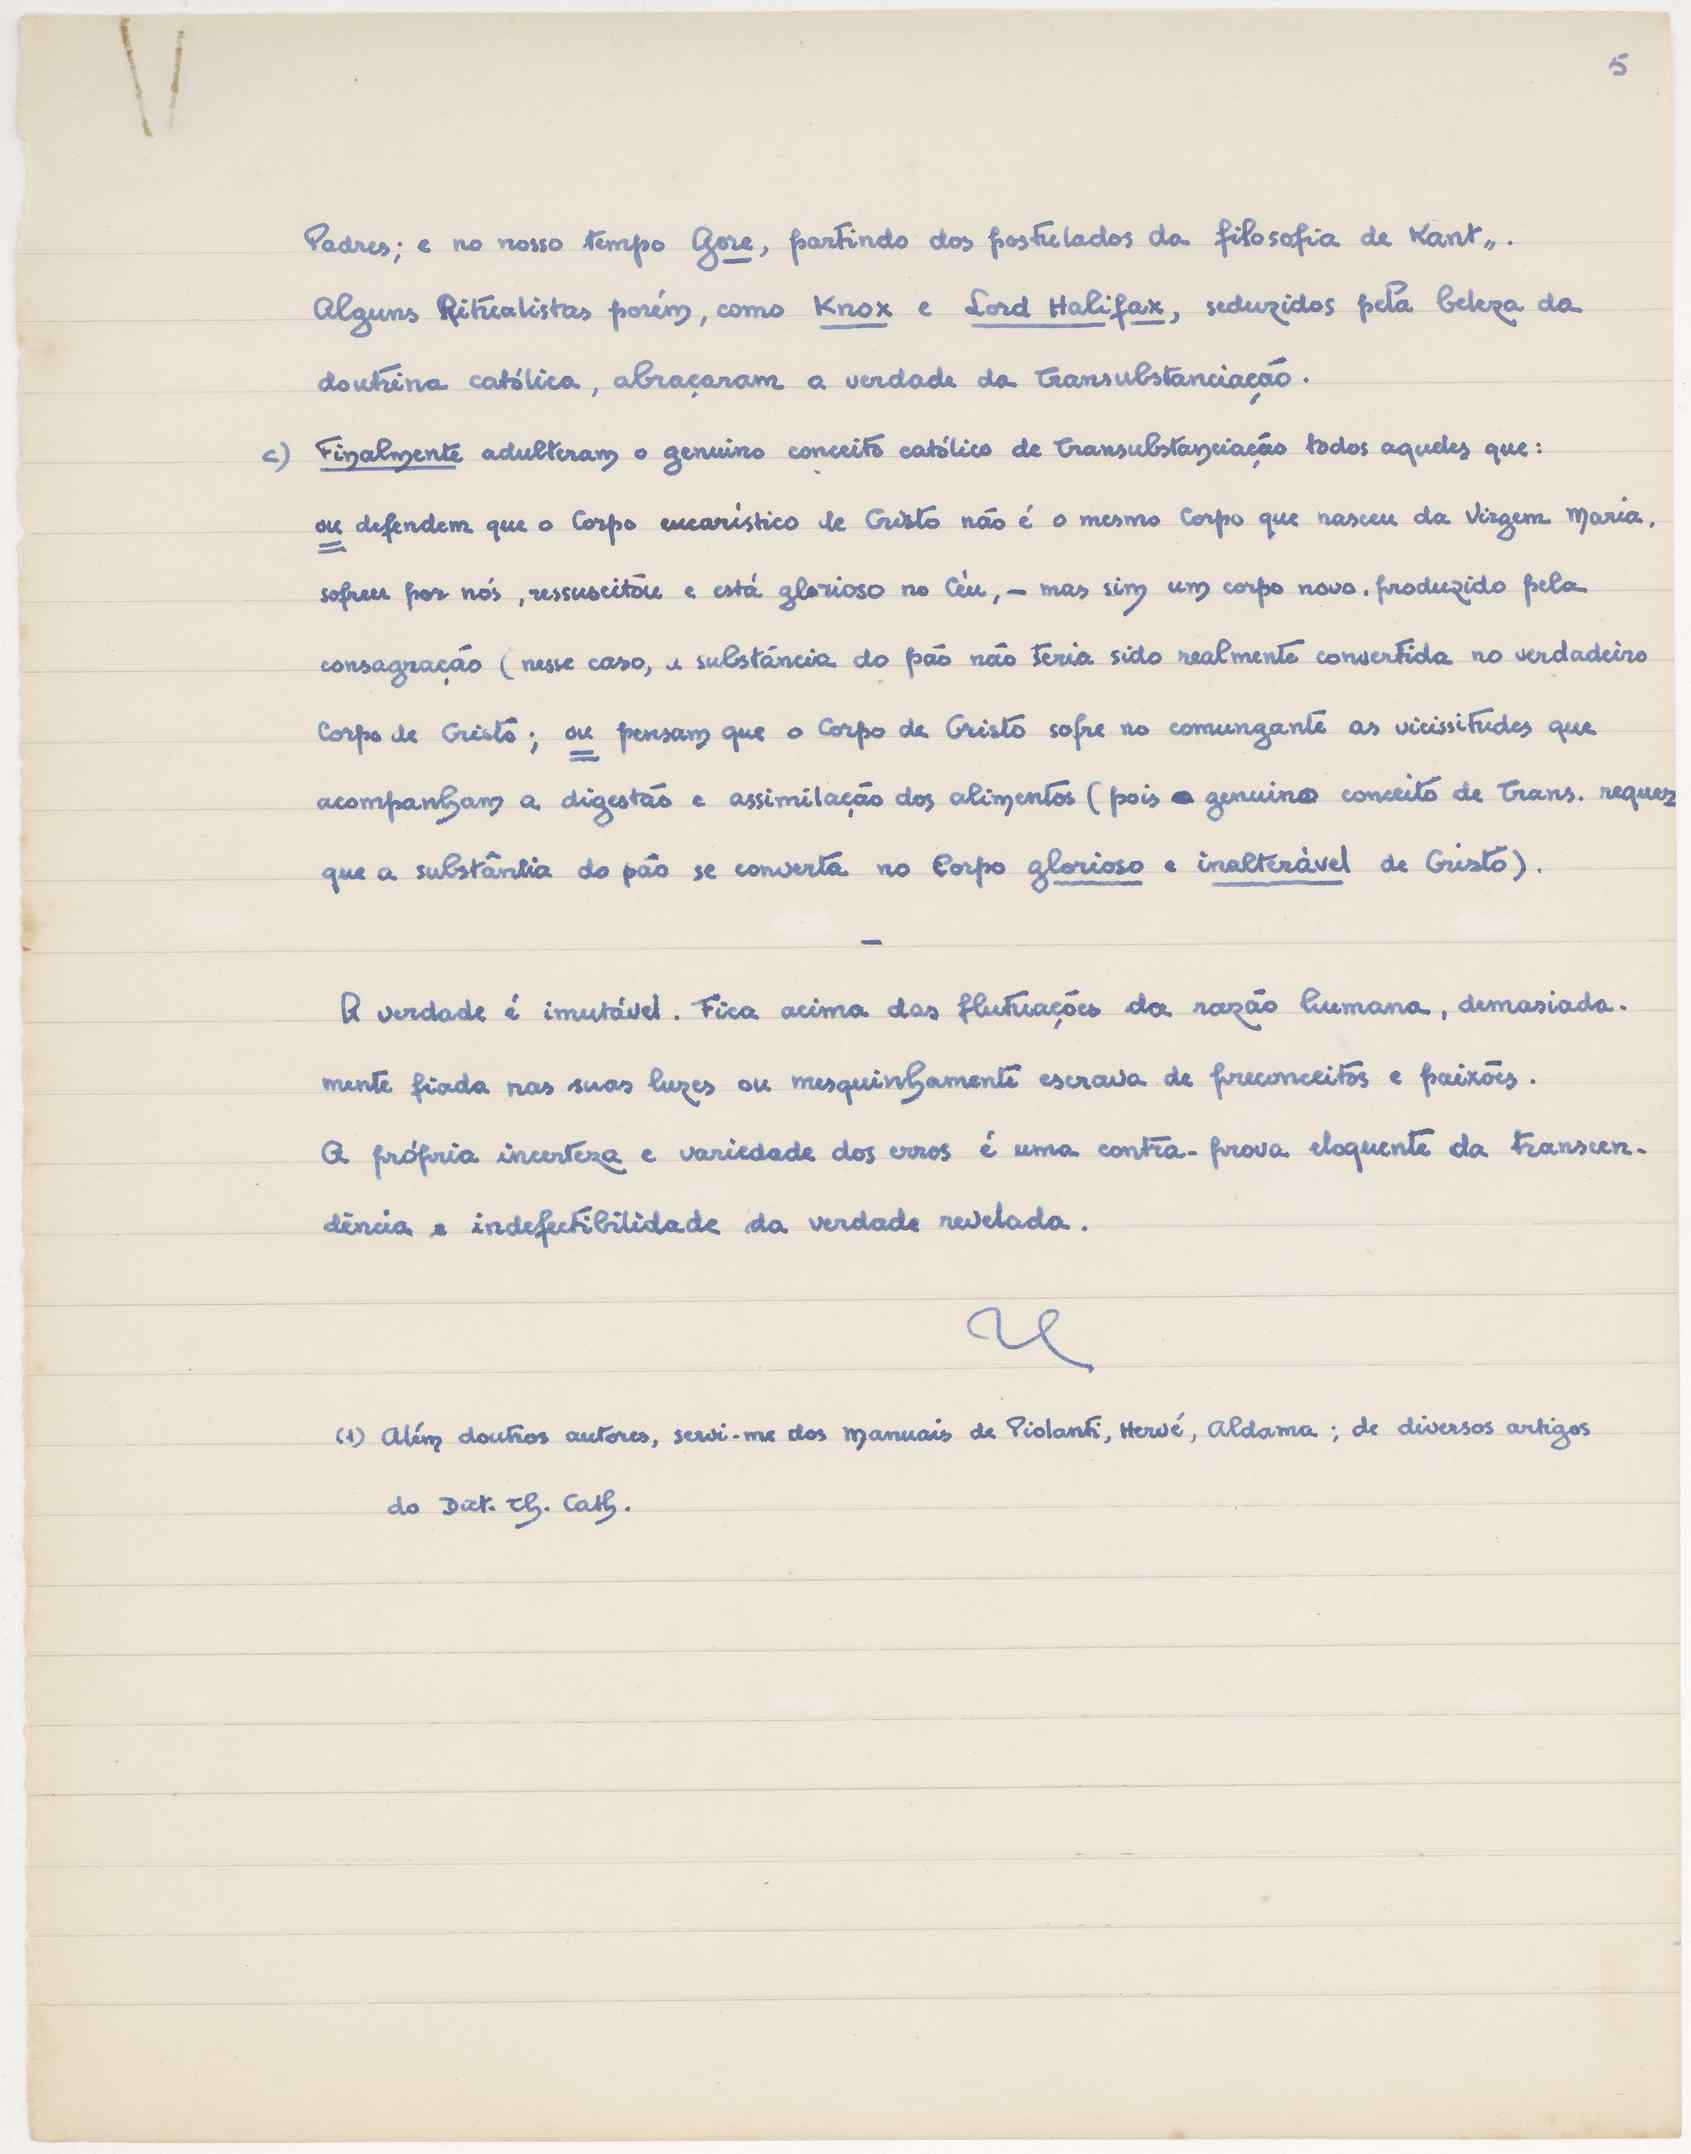 5
Padres; e no nosso tempo Gore, partindo dos postulados da filosofia de Kant„.
Alguns Ritualistas porém, como Knox e Lord Halifax, seduzidos pela beleza da
doutrina católica, abraçaram a verdade da Transubstanciação.
c) Finalmente adulteram o genuino conceito católico de Transubstanciação todos aqueles que:
ou defendem que o Corpo eucarístico de Cristo não é o mesmo Corpo que nasceu da Virgem Maria,
sofreu por nós, ressuscitou e está glorioso no Céu, – mas sim um corpo novo, produzido pela
consagração (nesse caso, a substância do pão não teria sido realmente convertida no verdadeiro
Corpo de Cristo; ou pensam que o Corpo de Cristo sofre no comungante as vicissitudes que
acompanham a digestão e assimilação dos alimentos (pois o genuino conceito de Trans. requer
que a substância do pão se converta no Corpo glorioso e inalterável de Cristo).
–
A verdade é imutável. Fica acima das flutuações da razão humana, demasiada-
mente fiada nas suas luzes ou mesquinhamente escrava de preconceitos e paixões.
A própria incerteza e variedade dos erros é uma contra-prova eloquente da transcen-
dência e indefectibilidade da verdade revelada.
(1) Além doutros autores, servi-me dos Manuais de Piolanti, Hervé, Aldama; de diversos artigos
do Dict. Th. Cath.